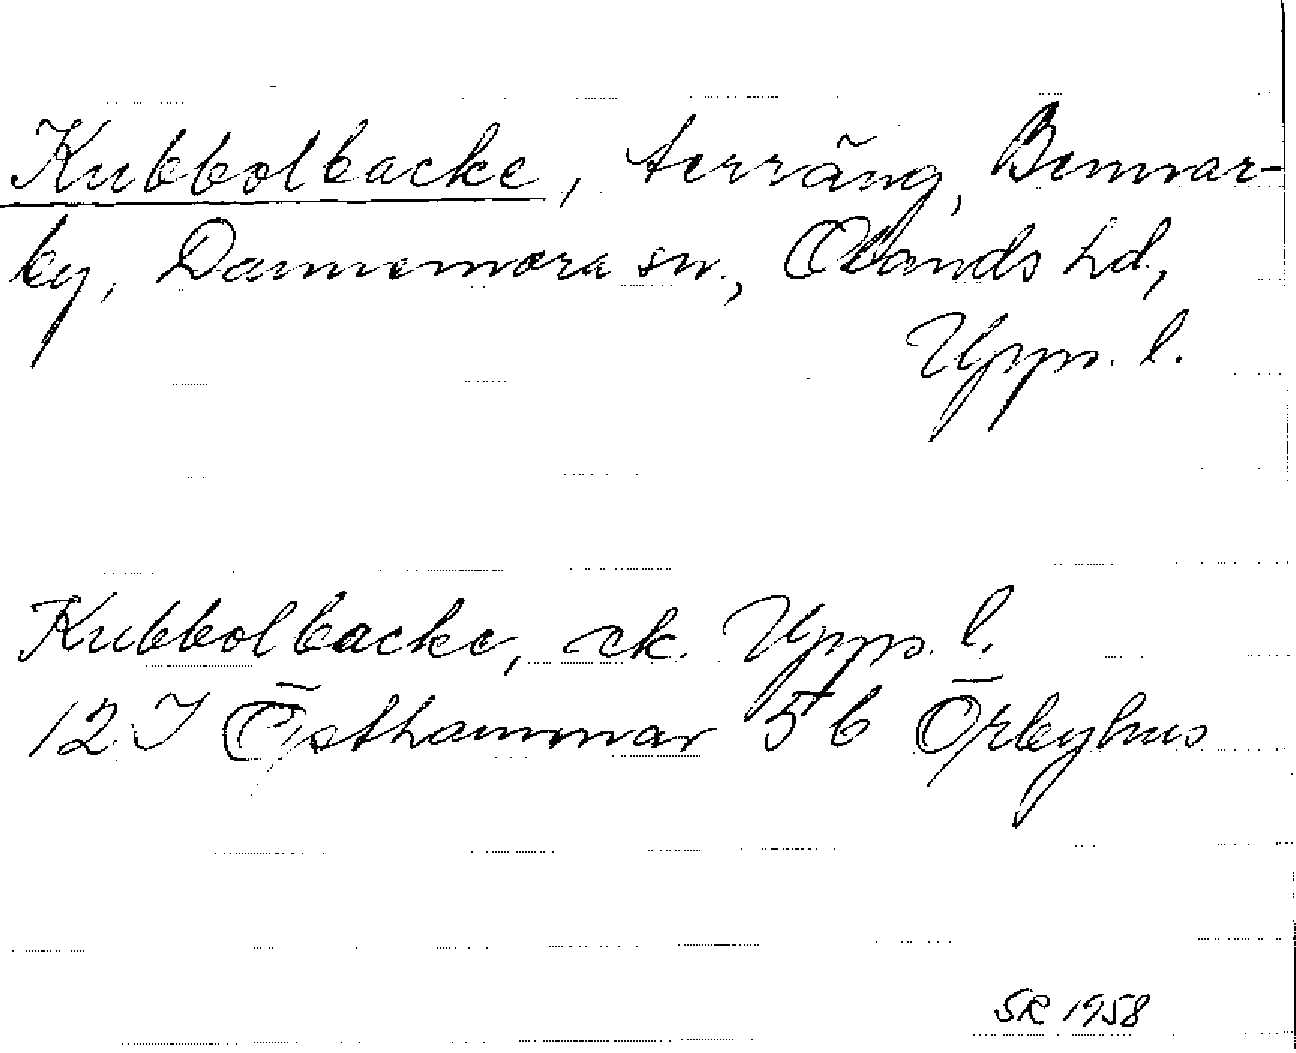 Kubbolbacke, terräng, Bennar-
by, Dannemora sn., Olands hd,
Upps. l.
Kubbolbacke, ek. Upps. l.
12 I Östhammar 5 b Örbyhus
SR 1958